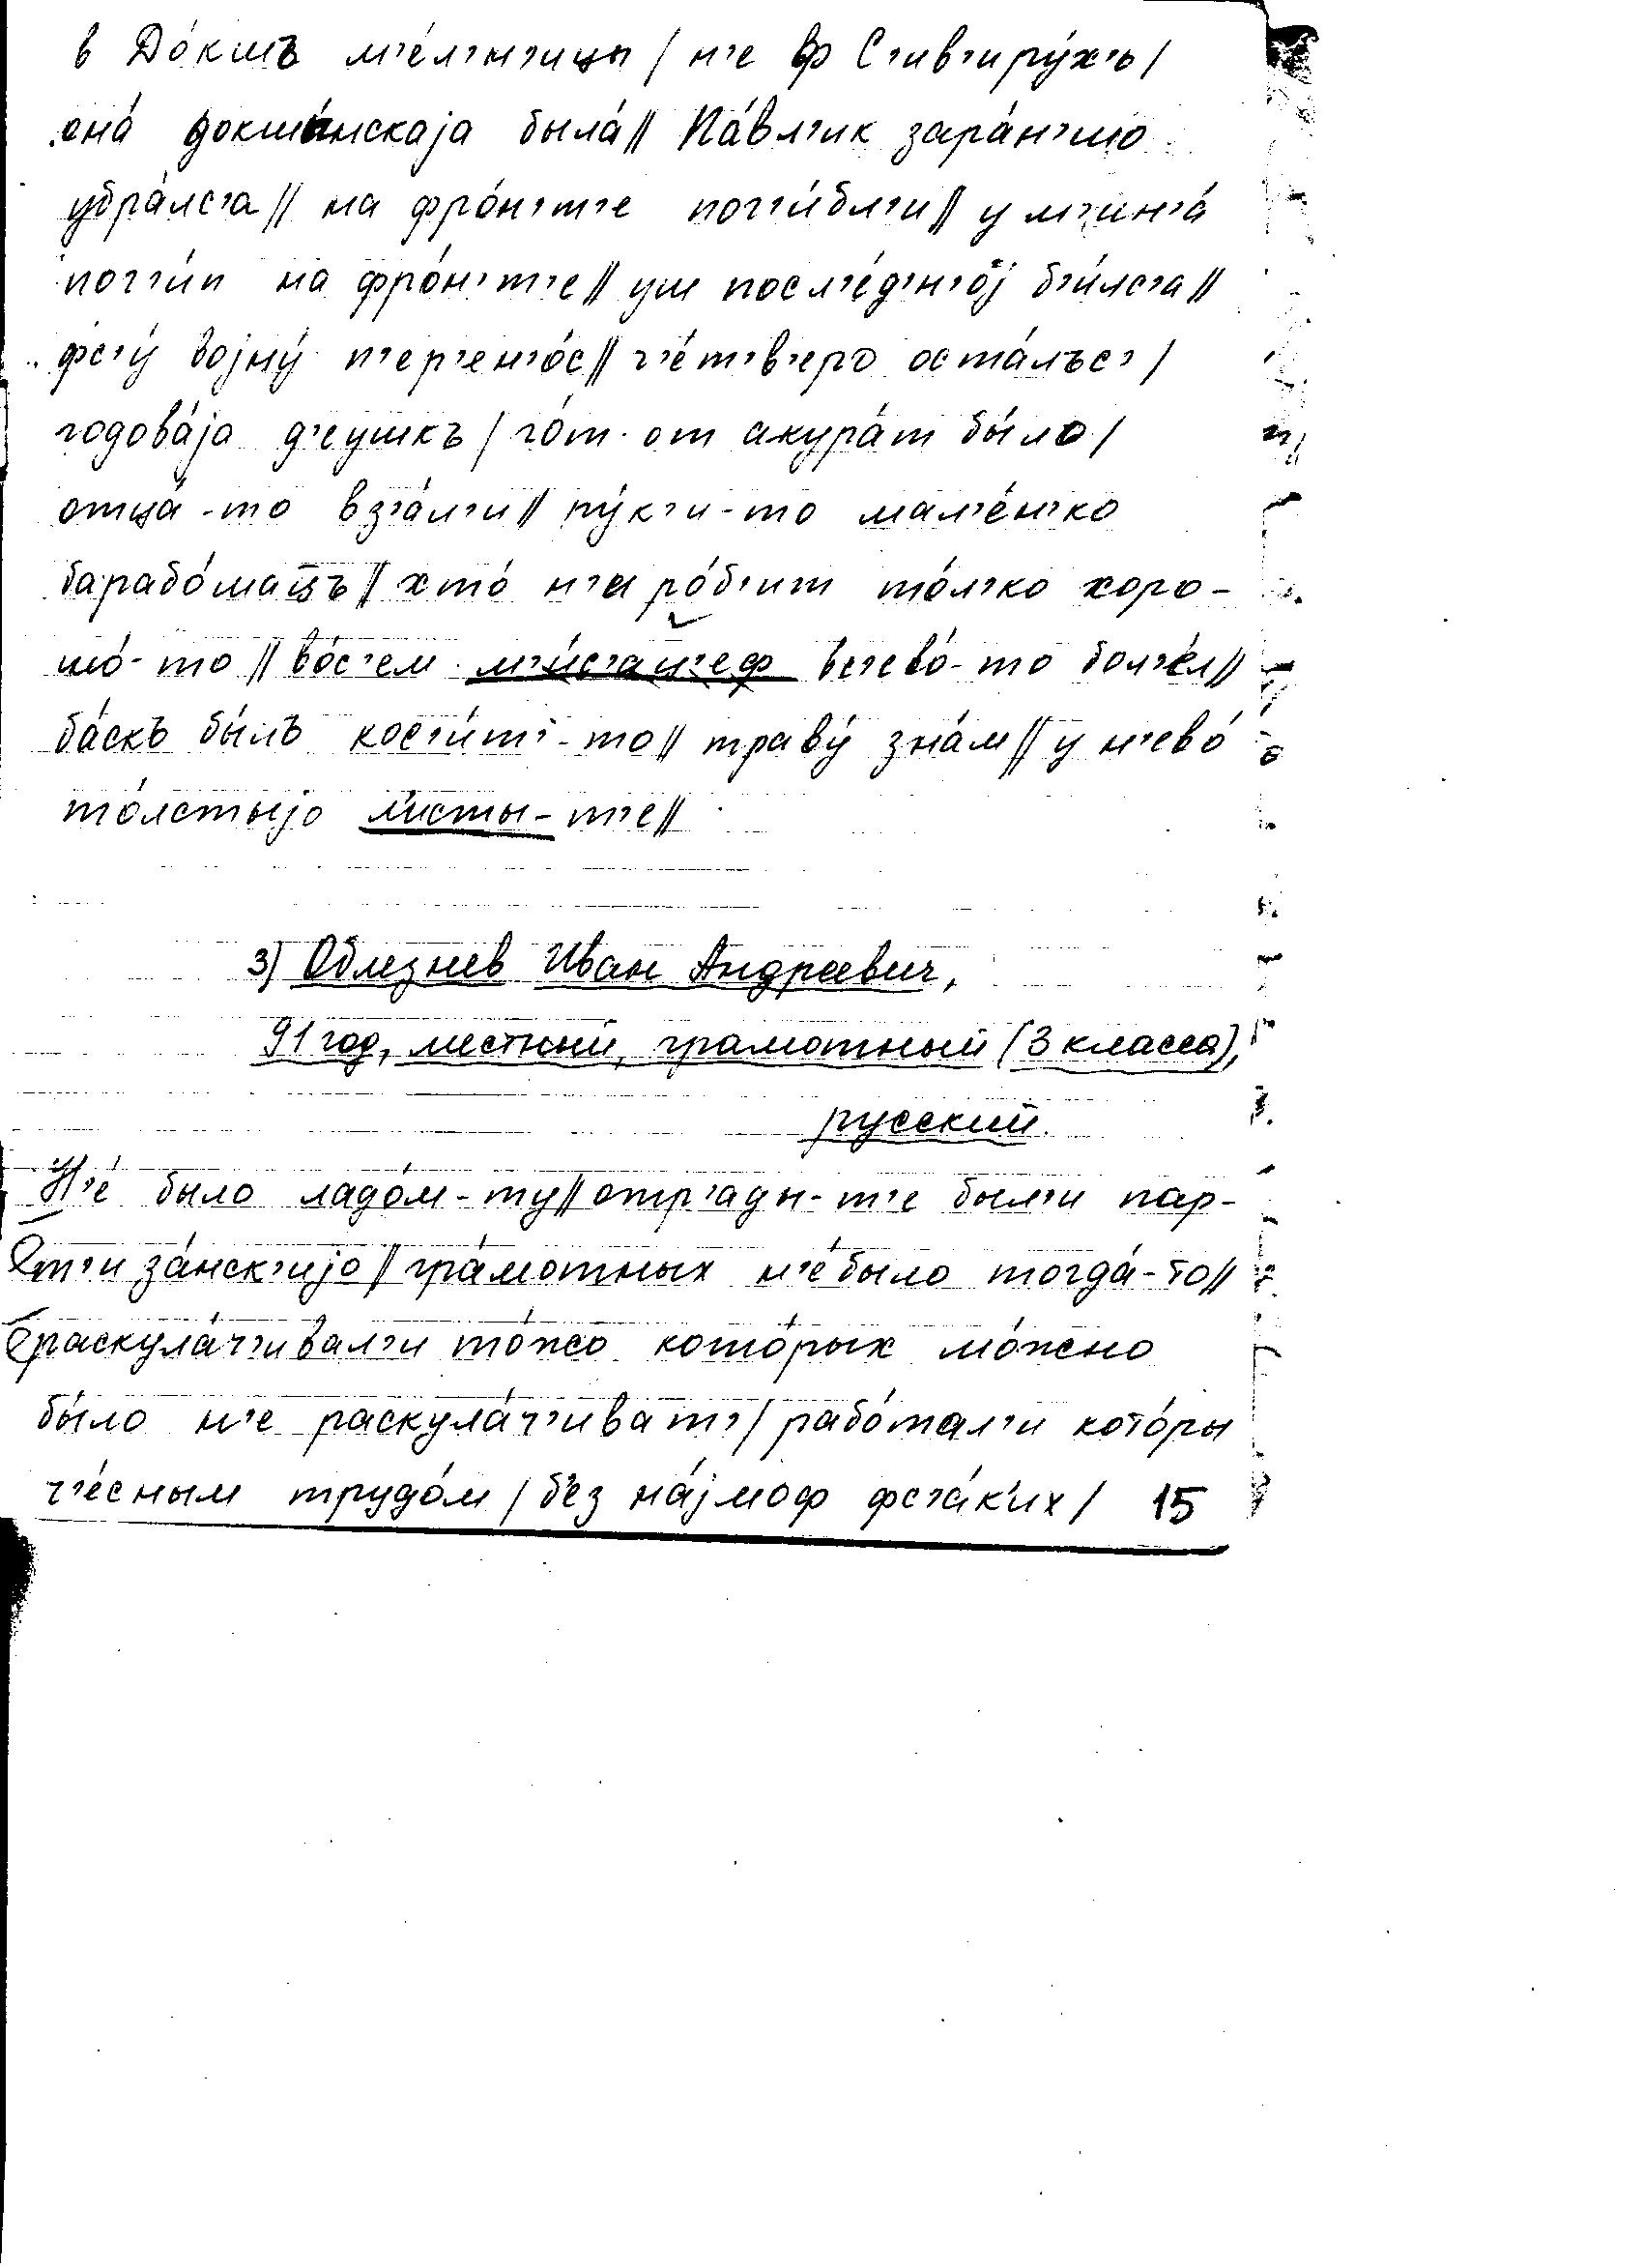 в До́кшъ м'е́л'н'ицы / н'е ф С'ив'иру́х'ь /
она́ докша́нскаjа была́ // Па́вл'ик зара́н'шо
убра́лс'а // на фро́н'т'е пог'и́бл'и // у м'ин'а́
пог'и́п на фро́н'т'е // уш посл'е́д'н'оj б'и́лс'а //
фс'у́ воjну́ п'ер'ен'о́с // ч'е́т'в'еро оста́лъс' /
годова́jа д'еушкъ / го́т от акура́т бы́ло /
отца́-то вз'а́л'и // ру́к'и-то мал'е́н'ко
барабо́шатцъ // хто́ н'и ро́б'ит то́л'ко хоро-
шо́-то // во́с'ем м'и́с'ац'еф вс'ево́-то бол'е́л //
ба́скъ бы́лъ кос'и́т'-то // траву́ зна́м // у н'ево́
то́лстыjо листы-т'е //
3) Облезнев Иван Андреевич,
91 год, местный, грамотный (3 класса),
русский.
Н'е́ было ладо́м-ту // отр'ады-т'е был'и пар-
т'иза́нск'иjо // гра́мотных н'е́ было тогда́-то //
раскула́ч'ивал'и то́жо кото́рых мо́жно
бы́ло н'е раскула́ч'иват' / рабо́тал'и кото́ры
ч'е́сным трудо́м / б'ез на́jмоф фс'а́к'их / 15